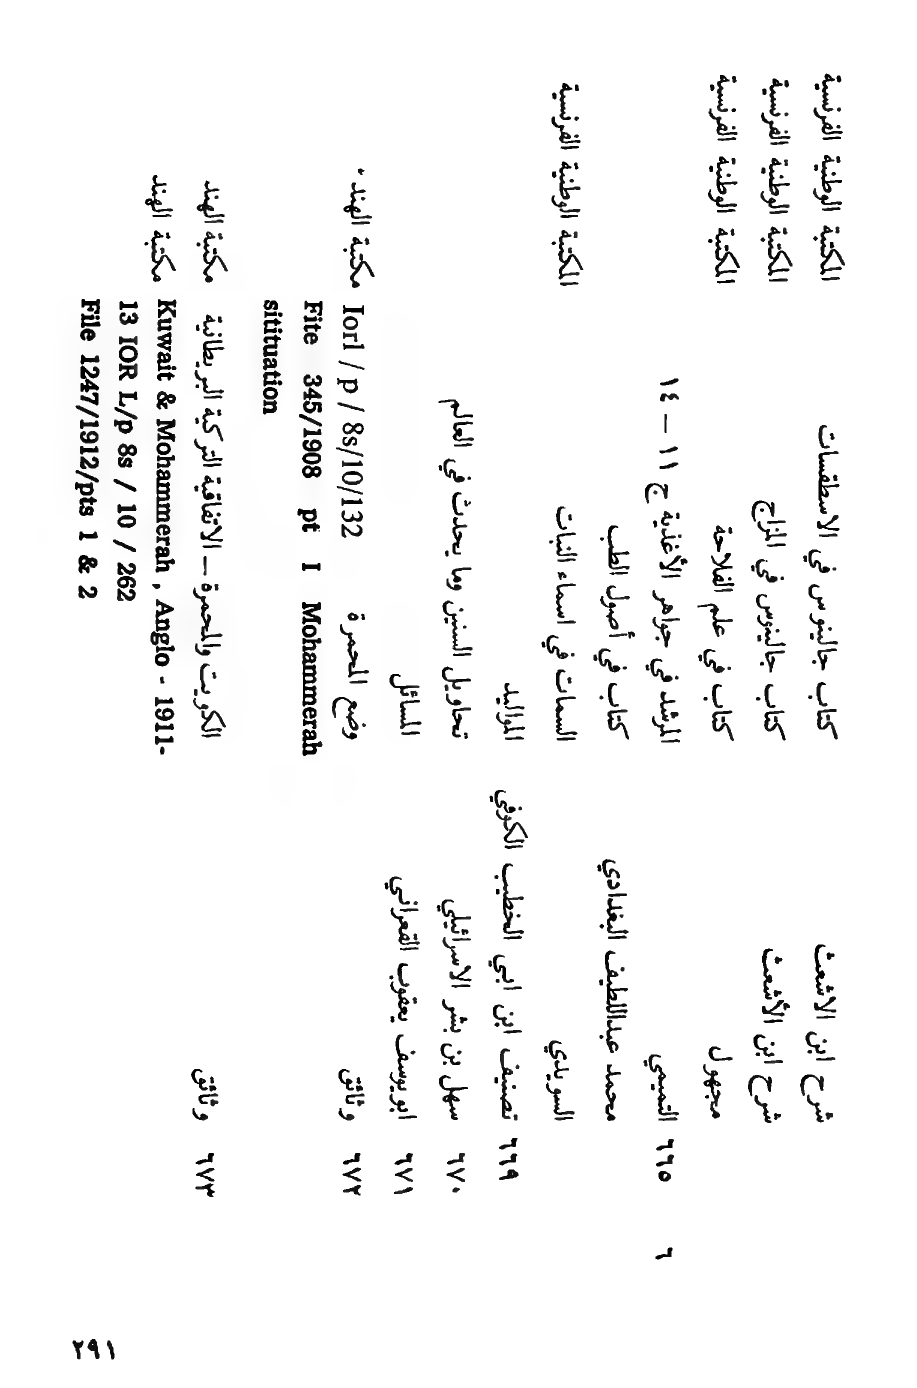 شرح ابن الاشعث كتاب جالينوس في الاسطقسات المكتبة الوطنية الفرنسية
شرح ابن الأشعث كتاب جالينوس في المزاج المكتبة الوطنية الفرنسية
مجهول كتاب في علم الفلاحة المكتبة الوطنية الفرنسية
٦ ٦٦٥ التميمي المرشد في جواهر الأغذية ج ١١ – ١٤
محمد عبداللطيف البغدادي كتاب في أصول الطب
السويدي السمات في اسماء النبات المكتبة الوطنية الفرنسية
٦٦٩ تصنيف ابن ابي الخطيب الكوفي المواليد
٦٧٠ سهل بن بشر الاسرائيلي تحاويل السنين وما يحدث في العالم
٦٧١ ابو يوسف يعقوب القعراني المسائل
٦٧٢ وثائق وضع المحمرة Iorl / p / 8s/10/132 مكتبة الهند
Fite 345/1908 pt I Mohammerah
sitituation
٦٧٣ وثائق الكويت والمحمرة – الاتفاقية التركية البريطانية مكتبة الهند
Kuwait & Mohammerah , Anglo - 1911- مكتبة الهند
13 IOR L/p 8s / 10 / 262
File 1247/1912/pts 1 & 2
٢٩١